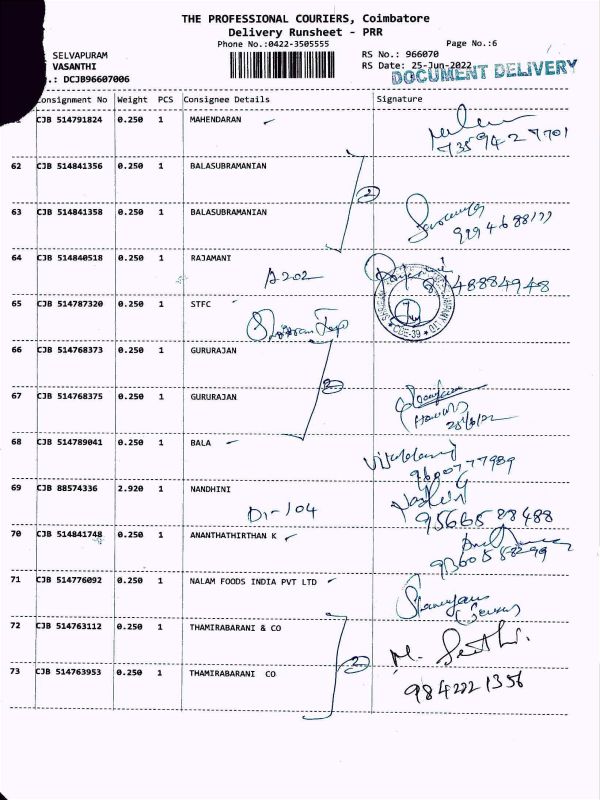 THE PROFESSIONAL COURIERS, Coimbatore
Delivery Runsheet - PRR
Phone No.:0422-3505555
Page No.:6
SELVAPURAM
RS No.: 966070
VASANTHI
RS Date: 25-Jun-2022
.: DCJB96607006
DOCUMENT DELIVERY
onsignment No Weight PCS Consignee Details Signature
CJB 514791824 0.250 1 MAHENDARAN
62 CJB 514841356 0.250 1 BALASUBRAMANIAN
2
63 CJB 514841358 0.250 1 BALASUBRAMANIAN
64 CJB 514840518 0.250 1 RAJAMANI
A202
65 CJB 514787320 0.250 1 STFC
CBE-39
66 CJB 514768373 0.250 1 GURURAJAN
2
67 CJB 514768375 0.250 1 GURURAJAN
68 CJB 514789041 0.250 1 BALA
69 CJB 88574336 2.920 1 NANDHINI
D1-104
9566588488
70 CJB 514841748 0.250 1 ANANTHATHIRTHAN K
71 CJB 514776092 0.250 1 NALAM FOODS INDIA PVT LTD
72 CJB 514763112 0.250 1 THAMIRABARANI & CO
2
73 CJB 514763953 0.250 1 THAMIRABARANI CO
9842221356